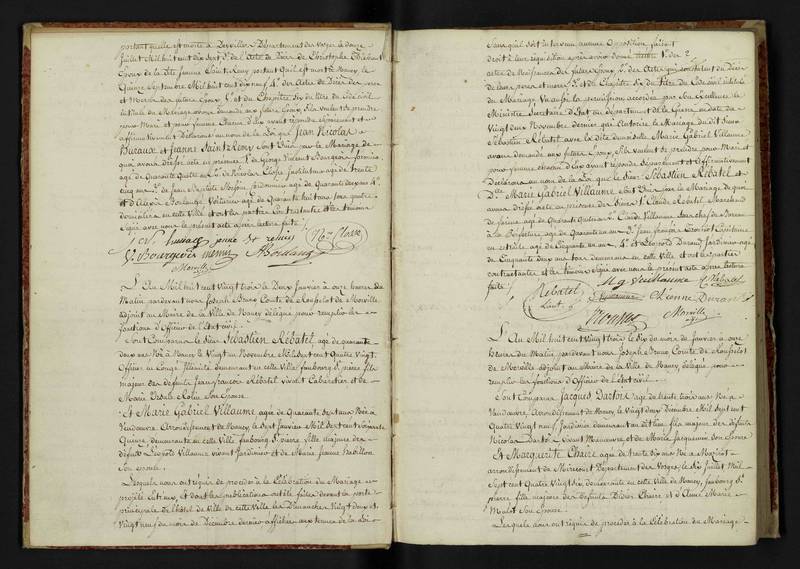 portant qu'elle est morte à Derviller, Département des Vosges le douze
juillet mil huit cent dix sept 3.° de l'acte de Décès de Christophe
Epoux de la dite Jeanne Saint Remy portant qu'il est mort à Nancy, le
Quinze Septembre mil huit cent dix neuf 4.° des actes de Décès des pere
et mere des futurs Epoux, 5.° et du Chapitre Six du titre du Code civil
intitulé du Mariage avons demandé aux futurs Epoux, s'ils veulent se prendre
pour Mari et pour femme Chacun d'Eux ayant répondu séparément et
affirmativement Déclarons au nom de la loi que Jean Nicolas
Buraux et Jeanne Saint Remy sont Unis par le Mariage de
quoi avons dressé acte en présence de George Vincent Bourgeois
agé de Quarante Quatre ans 2.° de Nicolas Closse Instituteur agé de trente
cinq ans 3.° de Jean Baptiste Menin Cordonnier agé de Quarante deux ans 4.°
et d'Alexis Boulange Voiturier agé de Quarante huit ans tous quatre
domiciliés en cette Ville et ont les parties Contractantes et les témoins
signé avec nous le présent acte après lecture faite
jeanne St remis
Nas Closse
V. Bourgeois menin
A Boulang
Morville
L'An Mil huit cent Vingt trois le Deux Janvier à onze heures du
Matin pardevant nous Joseph Bruno Comte de Rouselot de Morville
adjoint au Maire de la Ville de Nancy délégué pour remplir les
fonctions d'Officier de l'Etat civil
Sont Comparus le Sieur Sébastien Rébatel, agé de quarante
deux ans Né à Nancy le Vingt un Novembre Mil Sept cent Quatre Vingt,
Officier en Congé Illimité demeurant en cette Ville faubourg St. pierre, fils
majeur des défunts Jean françois Rébatel vivant Cabaretier et de
Marie Ursule Rolin Son Epouse
Et Marie Gabriel Villaume agée de Quarante Sept ans Née à
Vandœuvre arrondissement de Nancy le Sept Janvier Mil Sept cent Soixante
Quinze, demeurante en cette Ville faubourg St. pierre, fille majeure des
défunts Léopold Villaume vivant Jardinier et de Marie Jeanne
Son épouse
Lesquels nous ont requis de procéder à la Célébration du Mariage
projetté entr'eux, et dont les publications ont été faites devant la porte
principale de l'hôtel de Ville de cette Ville les Dimanches Vingt deux et
Vingt neuf du mois de Décembre dernier affichées aux termes de la Loi
Sans qu'il soit intervenu aucune Opposition faisant
droit à leur réquisition après avoir donné lecture 1.° des
actes de Naissance des futurs Epoux, 2.° des actes qui constatent du Décès
de leurs peres et meres 3.° et du Chapitre Six du Titre du Code civil intitulé
du Mariage Vu aussi la permission accordée par Son Excellence le
Ministre Secrétaire d'Etat au département de la Guerre en date du
Vingt deux Novembre dernier qui autorise le Mariage du dit Sieur
Sébastien Rébatel avec la dite demoiselle Marie Gabriel Villaume
avons demandé aux futurs Epoux, s'ils veulent se prendre pour Mari et
pour femme chacun d'Eux ayant répondu Séparément et affirmativement
Déclarons au nom de la Loi que le Sieur Sébastien Rébatel et
Dlle. Marie Gabriel Villaume Sont Unis par le Mariage de quoi
avons dressé acte en présence des Sieurs 1.° Claude Rebatel Marchand
de farine agé de Quarante Quatre ans 2.° Claude Villaume Sous chef de Bureau
à la Préfecture agé de Quarante un ans 3.° Jean françois Capitaine
en retraite agé de Cinquante un ans 4.° et Léopold Durand Jardinier agé
de Cinquante deux ans tous demeurans en cette Ville et ont les parties
contractantes et les témoins Signé avec nous le présent acte après lecture
faite
Rebatel
Lieut
M g Veillaume
C Rebatel
Etienne Duran
Morville
L'An Mil huit cent Vingt trois le Six du mois de Janvier à onze
heures du Matin, pardevant nous Joseph Bruno Comte de Rouselot
de Morville adjoint au Maire de la Ville de Nancy délégué pour
remplir les fonctions d'Officier de l'Etat civil
Sont Comparus Jacques Dartoy agé de trente trois ans Né à
Vandœuvre Arrondissement de Nancy le Vingt deux Décembre Mil Sept cent
Quatre Vingt neuf Jardinier demeurant au dit lieu fils majeur des défunts
Nicolas Dartoy Vivant Manœuvre et de Marie Jacquemin Son Epouse
Et Marguerite Chaire agée de trente Six ans Née à
arrondissement de Mirecourt Département des Vosges, le Six Juillet Mil
Sept cent Quatre Vingt Six, demeurante en cette Ville de Nancy, faubourg St.
pierre fille majeure des défunts Didier Chaire et d'Anne Marie
Malot Son Epouse
Lesquels nous ont requis de procéder à la Célébration du Mariage